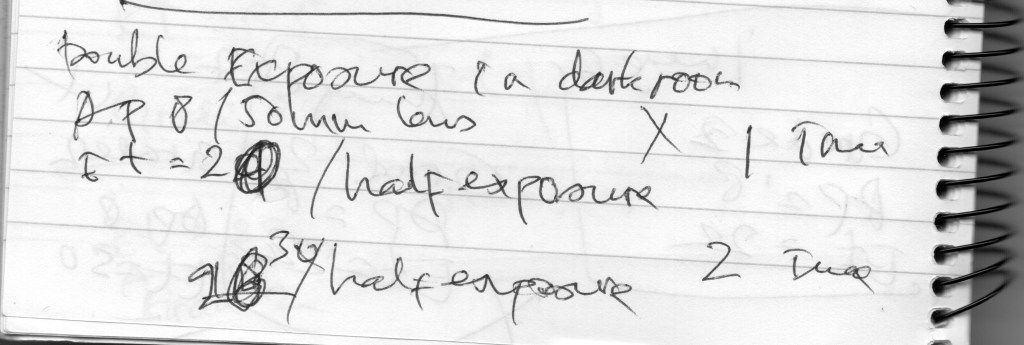 Double Exposure in a darkroom
AP 8 / 50mm lens X 1 Time
Et = 20 / half exposure
34 / half exposure 2 Time